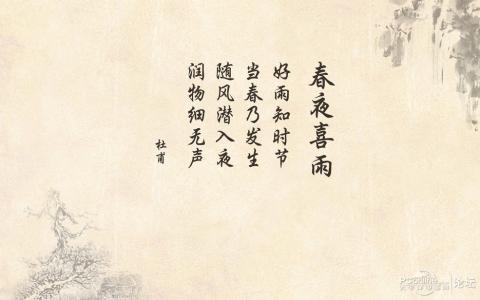 春夜喜雨
好雨知时节
当春乃发生
随风潜入夜
润物细无声
杜甫
论坛